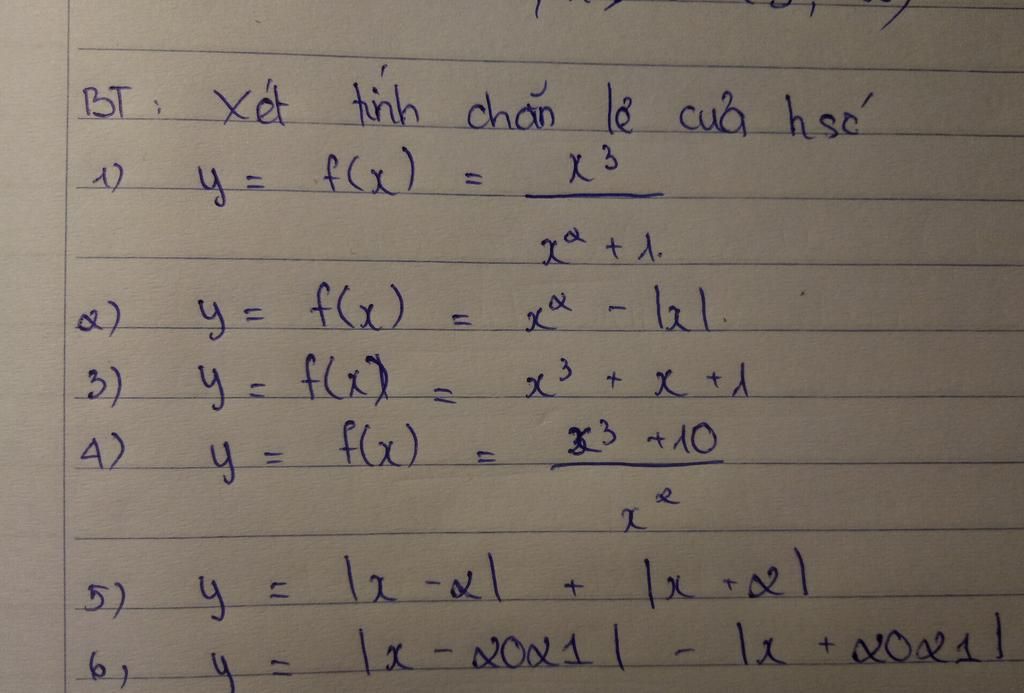 BT: Xét tính chẵn lẻ của hsố
1) y = f(x) = x³ / x² + 1.
2) y = f(x) = x² - |x|.
3) y = f(x) = x³ + x + 1
4) y = f(x) = x³ + 10 / x²
5) y = |x - 2| + |x + 2|
6, y = |x - 2021| - |x + 2021|